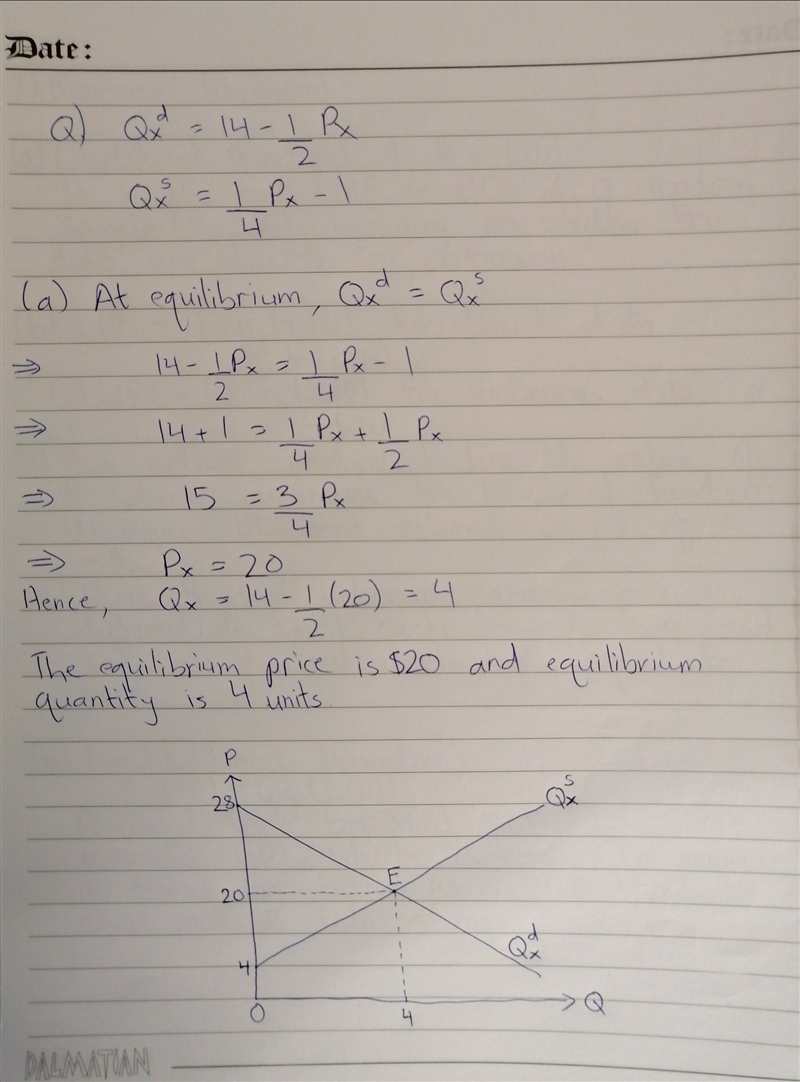 Date:
Q) Qxᵈ = 14 - 1/2 Px
Qxˢ = 1/4 Px - 1
(a) At equilibrium, Qxᵈ = Qxˢ
⇒ 14 - 1/2 Px = 1/4 Px - 1
⇒ 14 + 1 = 1/4 Px + 1/2 Px
⇒ 15 = 3/4 Px
⇒ Px = 20
Hence, Qx = 14 - 1/2 (20) = 4
The equilibrium price is $20 and equilibrium
quantity is 4 units
P
28
Qxˢ
E
20
Qxᵈ
4
0
4
Q
DALMATIAN